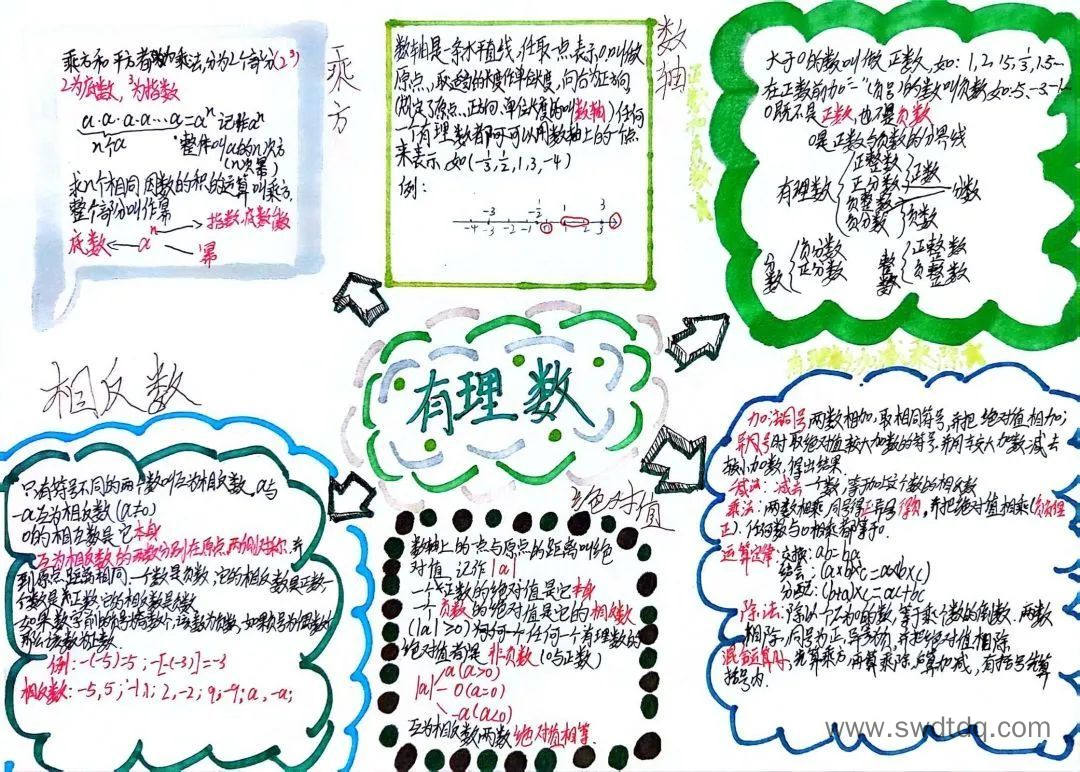 乘方
乘方和平方都为乘法,分为2个部分(2³)
2为底数,³为指数
a·a·a·a…a=aⁿ 记作aⁿ
n个a 整体叫a的n次方
(n次幂)
求n个相同因数的积的运算叫乘方,
整个部分叫作幂
指数,底数
底数 aⁿ
幂
数轴
数轴是一条水平直线,任取一点表示0,叫做
原点,取适当长度作单位长度,向右为正方向
(规定了原点、正方向、单位长度的叫数轴)任何
一个有理数都可以用数轴上的一个点
来表示,如(-⅓,½,1,3,-4)
例:
-3 -½ 1 3
-4 -3 -2 -1 0 2 3
正数和负数
大于0的数叫做正数,如:1,2,15,½,1.5
在正数前加“-”(负号)的数叫负数,如-5,-3
0既不是正数,也不是负数
0是正数与负数的分界线
有理数
正整数
正分数
负整数
负分数
正数
负数
分数
分数
负分数
正分数
整数
正整数
负整数
有理数
有理数的加减乘除
加法:同号两数相加,取相同符号,并把绝对值相加;
异号时取绝对值较大加数的符号,并用较大加数减去
较小加数,得出结果
减法:减去一个数,等于加这个数的相反数
乘法:两数相乘,同号得正异号得负,并把绝对值相乘(负负得
正).任何数与0相乘都等于0.
运算定律:交换:ab=ba
结合:(a×b)×c=a×(b×c)
分配:(b+a)×c=ac+bc
除法:除以一个不为0的数,等于乘个数的倒数.两数
相除,同号为正,异号为负,并把绝对值相除
混合运算时,先算乘方,再算乘除,后算加减,有括号先算
括号内.
相反数
只有符号不同的两个数叫互为相反数,a与
-a互为相反数(a≠0)
0的相反数是它本身
互为相反数的两数分别在原点两侧对称,并
到原点距离相同,一个数是负数,它的相反数是正数,一
个数是正数它的相反数是负数
如果数字前的负号为奇数个,该数为负数,如果负号为偶数个
那么该数为正数
例:-(-5)=5;-[-(-3)]=-3
相反数:-5,5;-1,1;2,-2;9,-9;a,-a;
绝对值
数轴上的一点与原点的距离叫绝
对值,记作|a|
一个正数的绝对值是它本身
一个负数的绝对值是它的相反数
(|a|≥0)为何一个任何一个有理数的
绝对值都是非负数(0与正数)
a(a>0)
|a| 0(a=0)
-a(a<0)
互为相反数两数绝对值相等.
www.swdtdq.com